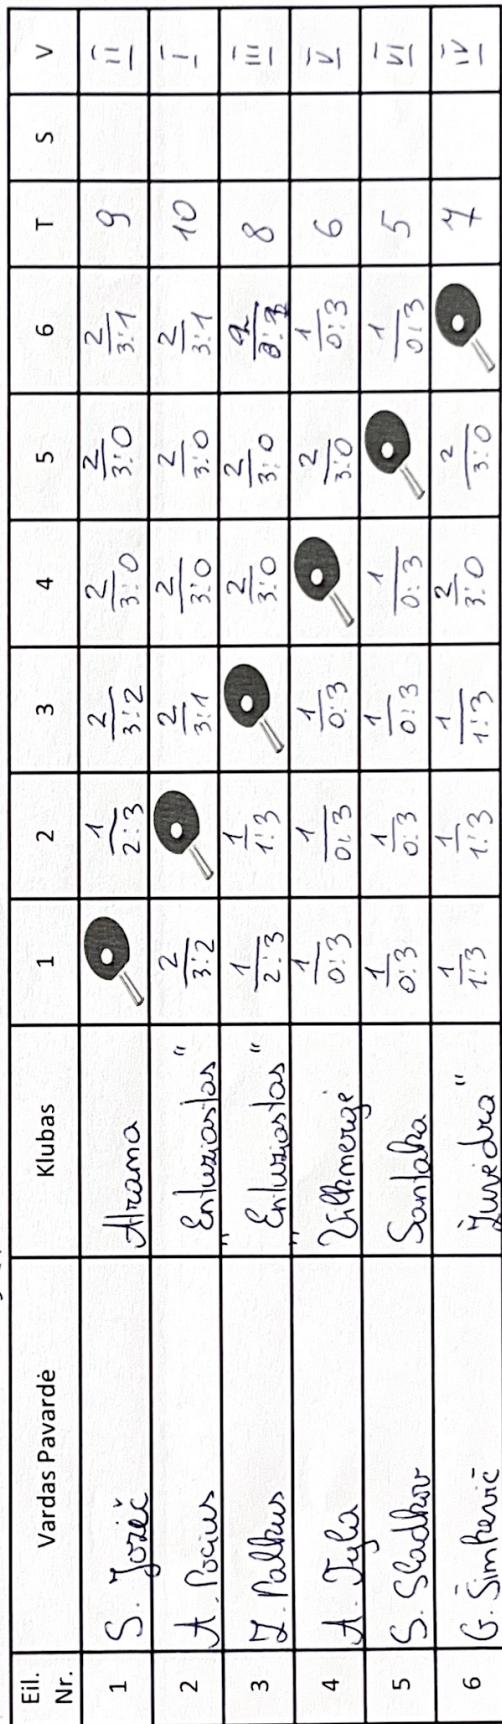 Eil. Nr. Vardas Pavardė Klubas 1 2 3 4 5 6 T S V
1 S. Jozič Atrama 1/2:3 2/3:2 2/3:0 2/3:0 2/3:1 9 II
2 A. Pocius "Entuziastas" 2/3:2 2/3:1 2/3:0 2/3:0 2/3:1 10 I
3 Z. Palkus "Entuziastas" 1/2:3 1/1:3 2/3:0 2/3:0 2 8 III
4 A. Tyla Vilkmergė 1/0:3 1/0:3 1/0:3 2/3:0 1/0:3 6 V
5 S. Sladkov Santaka 1/0:3 1/0:3 1/0:3 1/0:3 1/0:3 5 VI
6 G. Šimkevič Žuvėdra" 1/1:3 1/1:3 1/1:3 2/3:0 2/3:0 7 IV